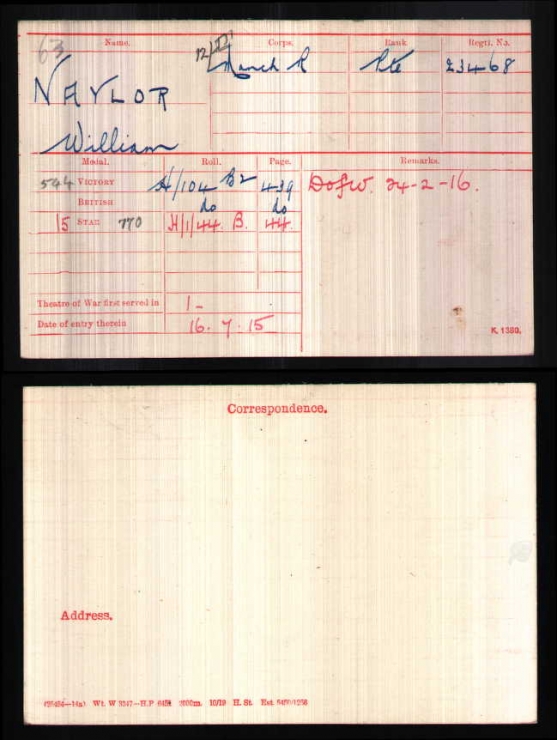 63
Name. Corps. Rank. Regtl. No.
NAYLOR 12/ Manch R Pte 23468
William
Medal. Roll. Page. Remarks.
544 VICTORY H/104 B2 439 DofW. 24-2-16.
BRITISH do do
15 STAR 770 H/1/44 B. 44.
Theatre of War first served in 1-
Date of entry therein 16. 7. 15
K. 1380.
Correspondence.
Address.
Wt. W 3517—H.P 2000m. 10/19 H. St.